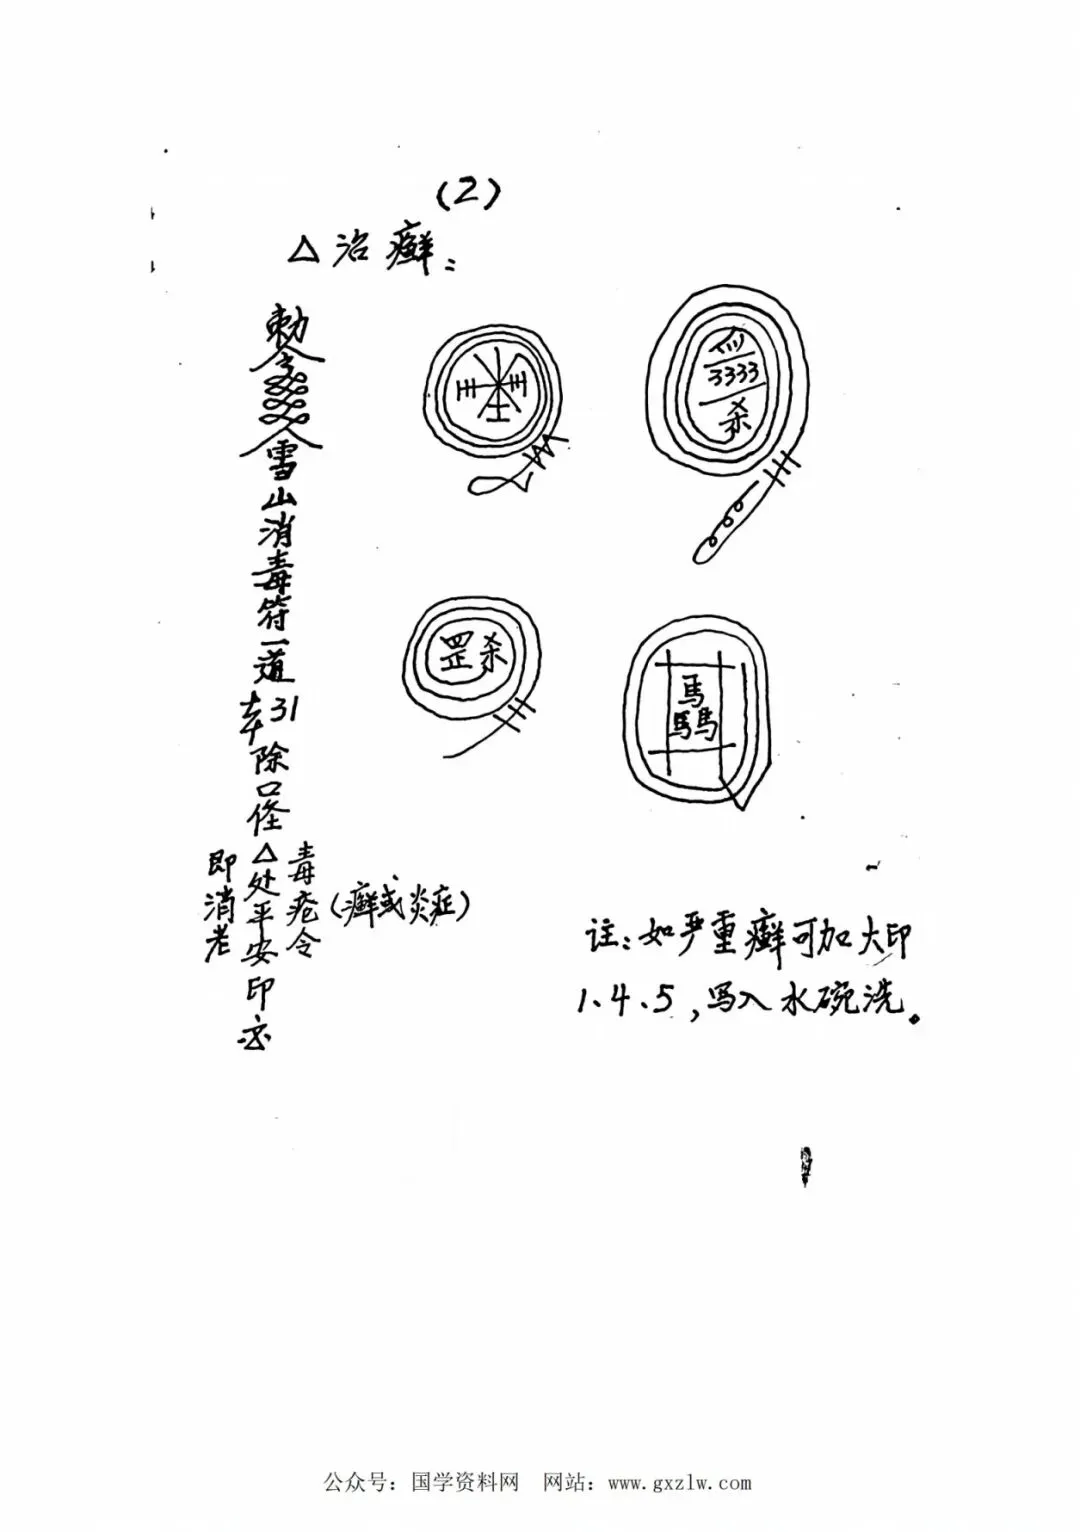 (2)
△治癣:
勅令
雪山消毒符一道
本引除口怪
毒疮令
△处平安印
即消老
(癣或炎症)
3333
杀
罡杀
馬
馬馬
註:如严重癣可加大印
1.4.5,写入水碗洗。
公众号:国学资料网 网站:www.gxzlw.com